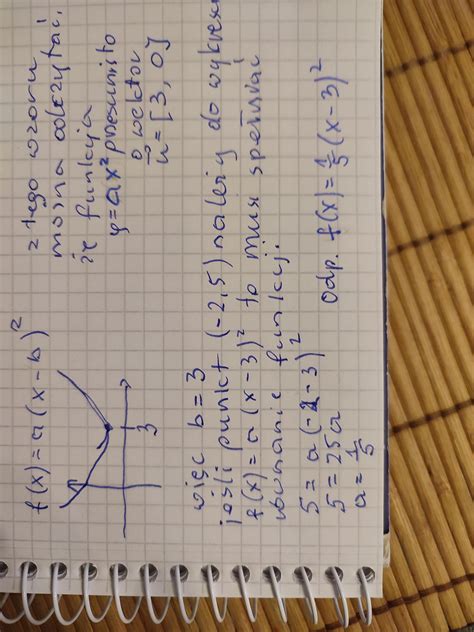 f(x) = a(x-b)²
z tego wzoru
można odczytać,
że funkcja
y=ax² przesunięto
o wektor
u = [3, 0]
3
więc b = 3
jeśli punkt (-2,5) należy do wykresu
f(x) = a(x-3)² to musi spełniać
równanie funkcji.
5 = a(-2-3)²
5 = 25a
a = 1/5
Odp. f(x) = 1/5 (x-3)²